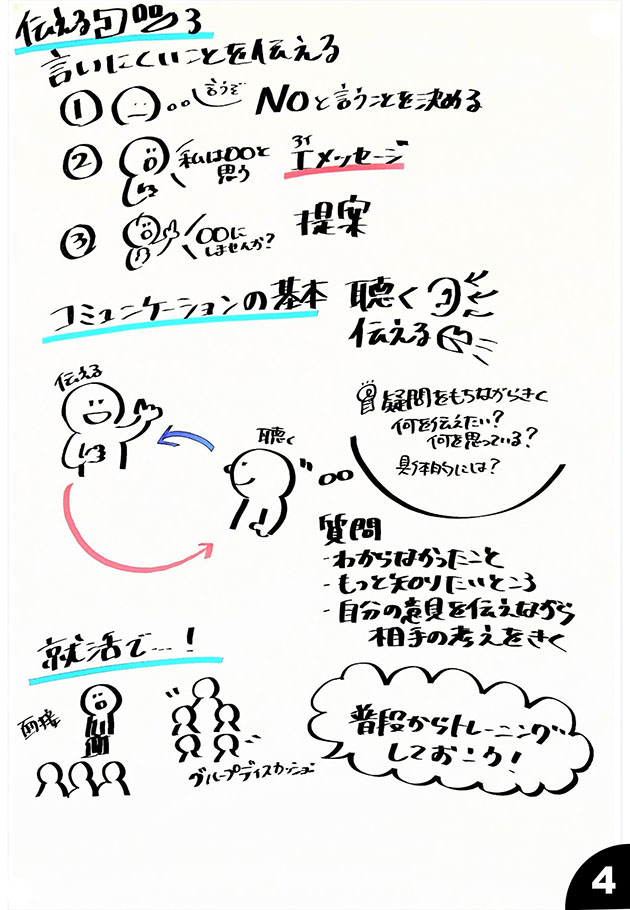 伝える 3
言いにくいことを伝える
① 言うぞ NOと言うことを決める
② 私は〇〇と
思う
アイ
Iメッセージ
③ 〇〇に
しませんか?
提案
コミュニケーションの基本
聴く
伝える
伝える
聴く
疑問をもちながらきく
何を伝えたい?
何を思っている?
具体的には?
質問
・わからなかったこと
・もっと知りたいところ
・自分の意見を伝えながら
相手の考えをきく
就活で…!
面接
グループディスカッション
普段からトレーニング
しておこう!
4